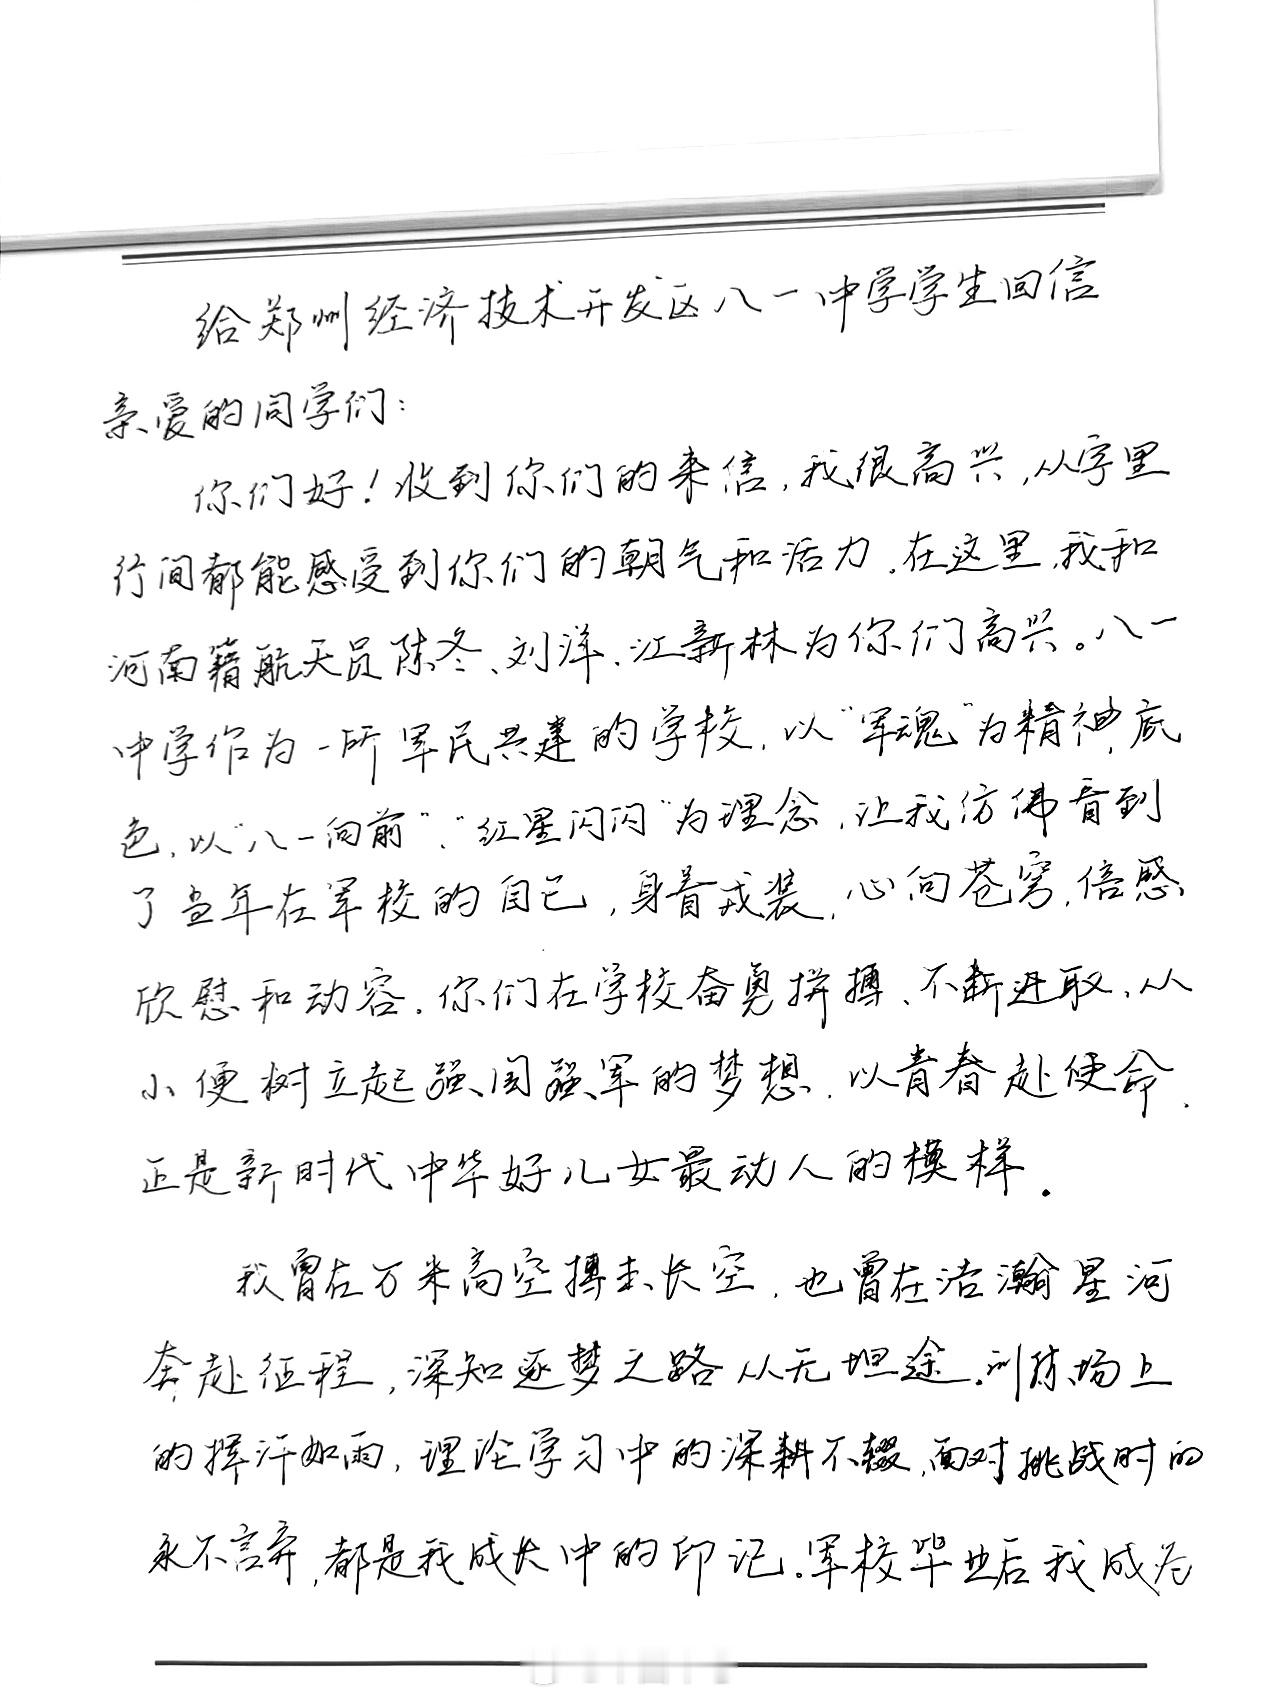 给郑州经济技术开发区八一中学学生回信
亲爱的同学们：
你们好！收到你们的来信，我很高兴，从字里
行间都能感受到你们的朝气和活力。在这里，我和
河南籍航天员陈冬、刘洋、江新林为你们高兴。八一
中学作为一所军民共建的学校，以“军魂”为精神底
色，以“八一向前”、“红星闪闪”为理念，让我仿佛看到
了当年在军校的自己，身着戎装，心向苍穹，倍感
欣慰和动容。你们在学校奋勇拼搏、不断进取，从
小便树立起强国强军的梦想，以青春赴使命，
正是新时代中华好儿女最动人的模样。
我曾在万米高空搏击长空，也曾在浩瀚星河
奔赴征程，深知逐梦之路从无坦途。训练场上
的挥汗如雨，理论学习中的深耕不辍，面对挑战时的
永不言弃，都是我成长中的印记。军校毕业后我成为